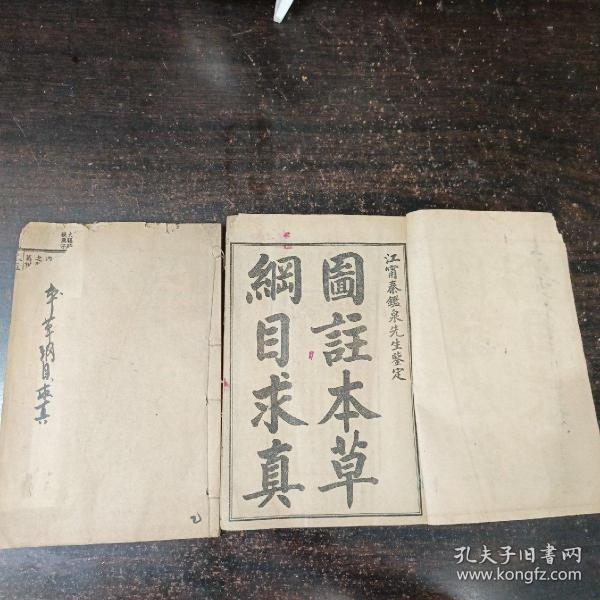 江甯秦鑑泉先生鉴定
圖註本草
綱目求真
本草綱目求真
孔夫子旧书网
www.kongfz.com